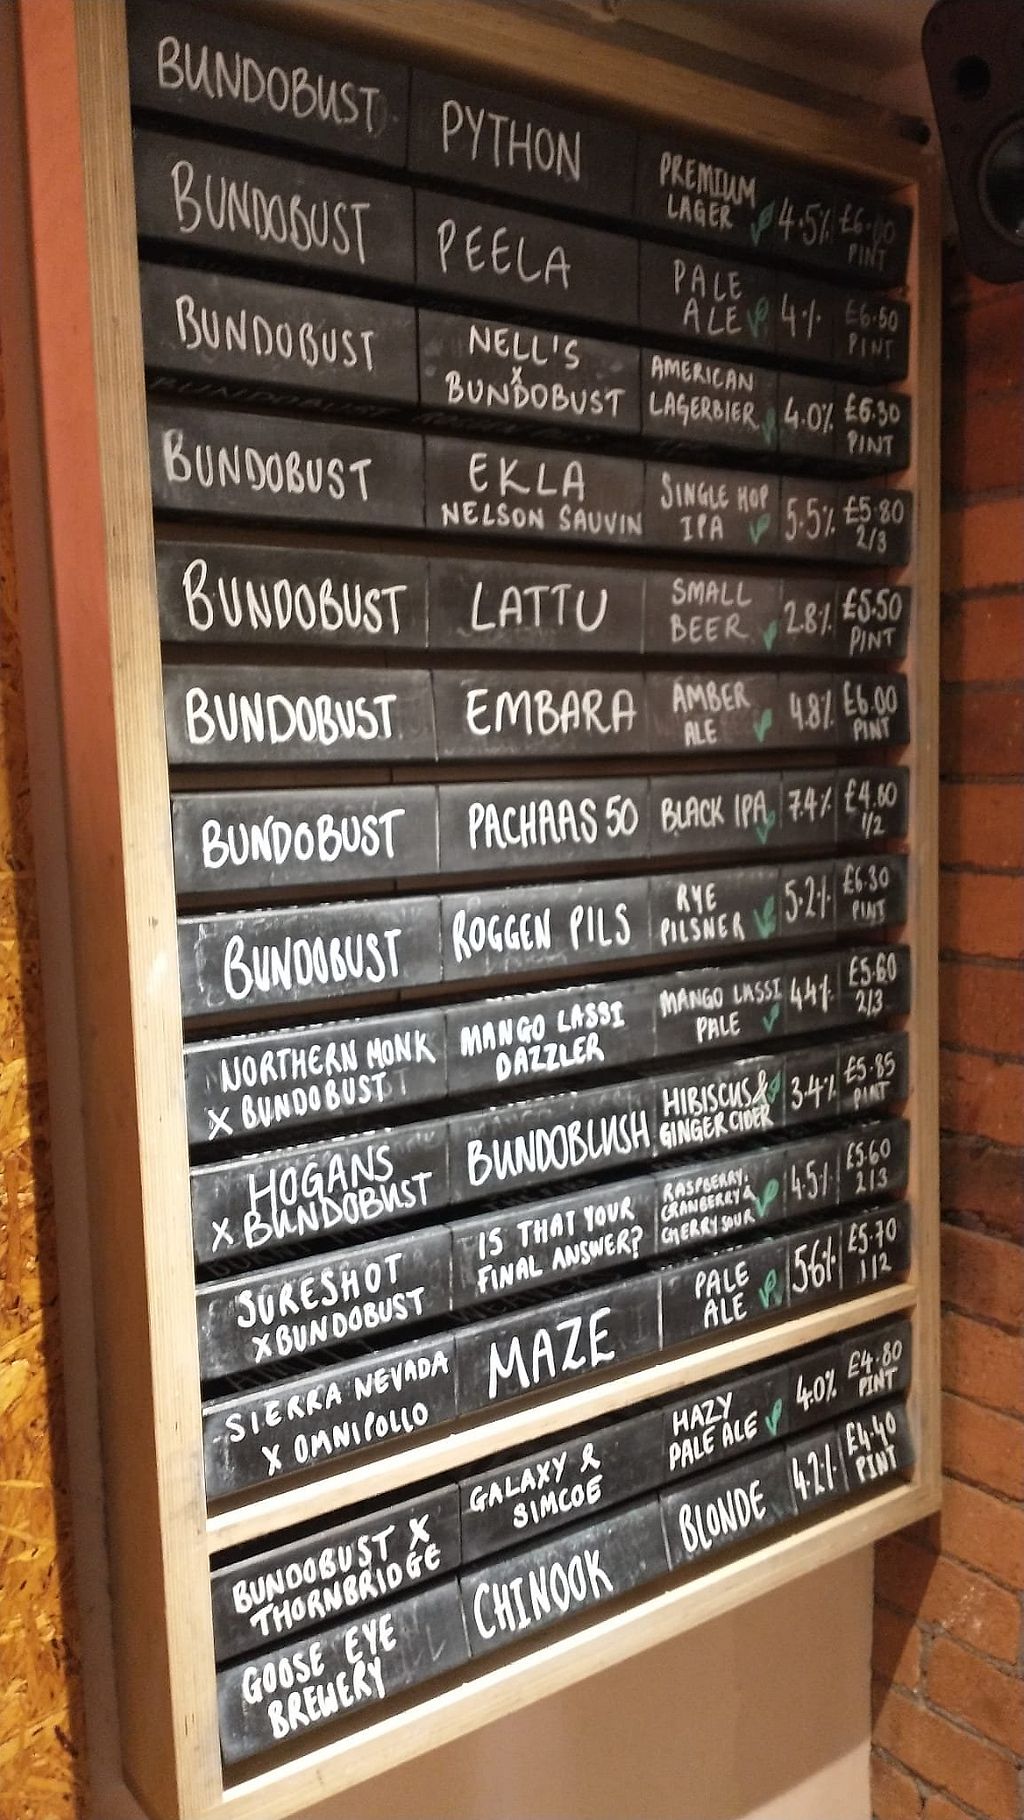 BUNDOBUST PYTHON PREMIUM LAGER 4.5% £6.00 PINT
BUNDOBUST PEELA PALE ALE 4% £6.50 PINT
BUNDOBUST NELL'S X BUNDOBUST AMERICAN LAGERBIER 4.0% £6.30 PINT
BUNDOBUST EKLA NELSON SAUVIN SINGLE HOP IPA 5.5% £5.80 2/3
BUNDOBUST LATTU SMALL BEER 2.8% £5.50 PINT
BUNDOBUST EMBARA AMBER ALE 4.8% £6.00 PINT
BUNDOBUST PACHAAS 50 BLACK IPA 7.4% £4.80 1/2
BUNDOBUST ROGGEN PILS RYE PILSNER 5.2% £6.30 PINT
NORTHERN MONK X BUNDOBUST MANGO LASSI DAZZLER MANGO LASSI PALE 4.4% £5.60 2/3
HOGANS X BUNDOBUST BUNDOBLUSH HIBISCUS & GINGER CIDER 3.4% £5.85 PINT
SURESHOT X BUNDOBUST IS THAT YOUR FINAL ANSWER? RASPBERRY, CRANBERRY & CHERRY SOUR 4.5% £5.60 2/3
SIERRA NEVADA X OMNIPOLLO MAZE PALE ALE 5.6% £5.70 1/2
BUNDOBUST X THORNBRIDGE GALAXY & SIMCOE HAZY PALE ALE 4.0% £4.80 PINT
GOOSE EYE BREWERY CHINOOK BLONDE 4.2% £4.40 PINT